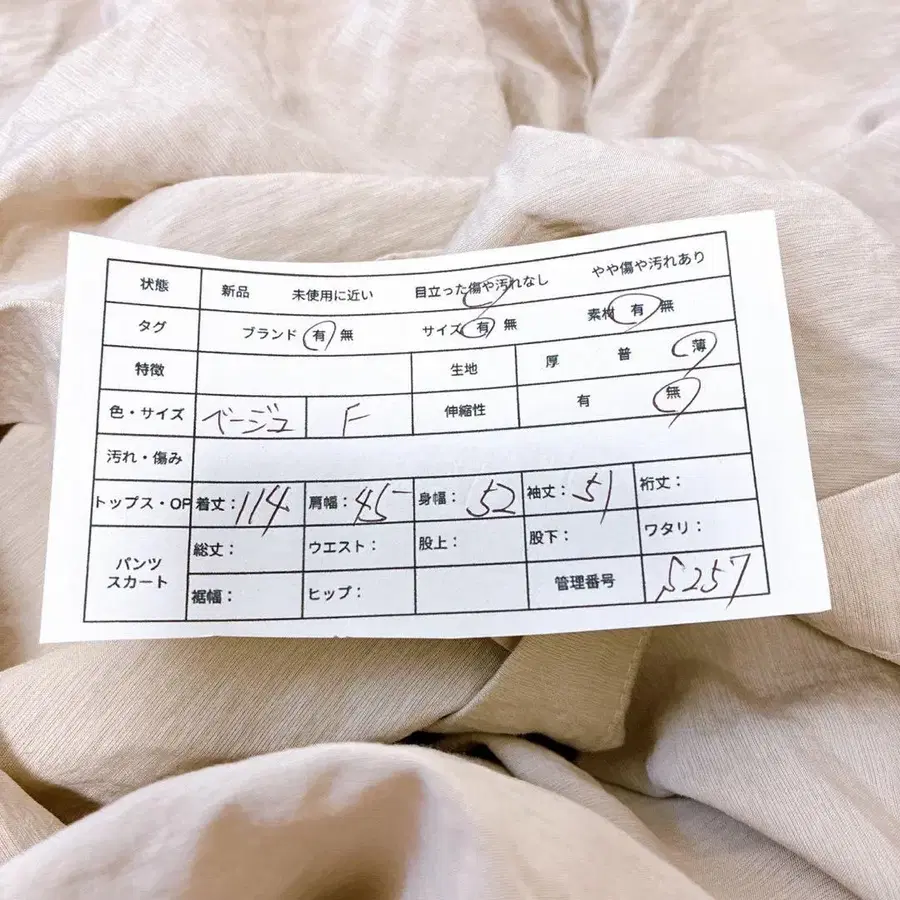 状態 新品 未使用に近い 目立った傷や汚れなし やや傷や汚れあり
タグ ブランド 有 無 サイズ 有 無 素材 有 無
特徴 生地 厚 普 薄
色・サイズ ベージュ F 伸縮性 有 無
汚れ・傷み
トップス・OP 着丈：114 肩幅：45 身幅：52 袖丈：51 裄丈：
パンツ スカート 総丈： ウエスト： 股上： 股下： ワタリ：
裾幅： ヒップ： 管理番号 S257